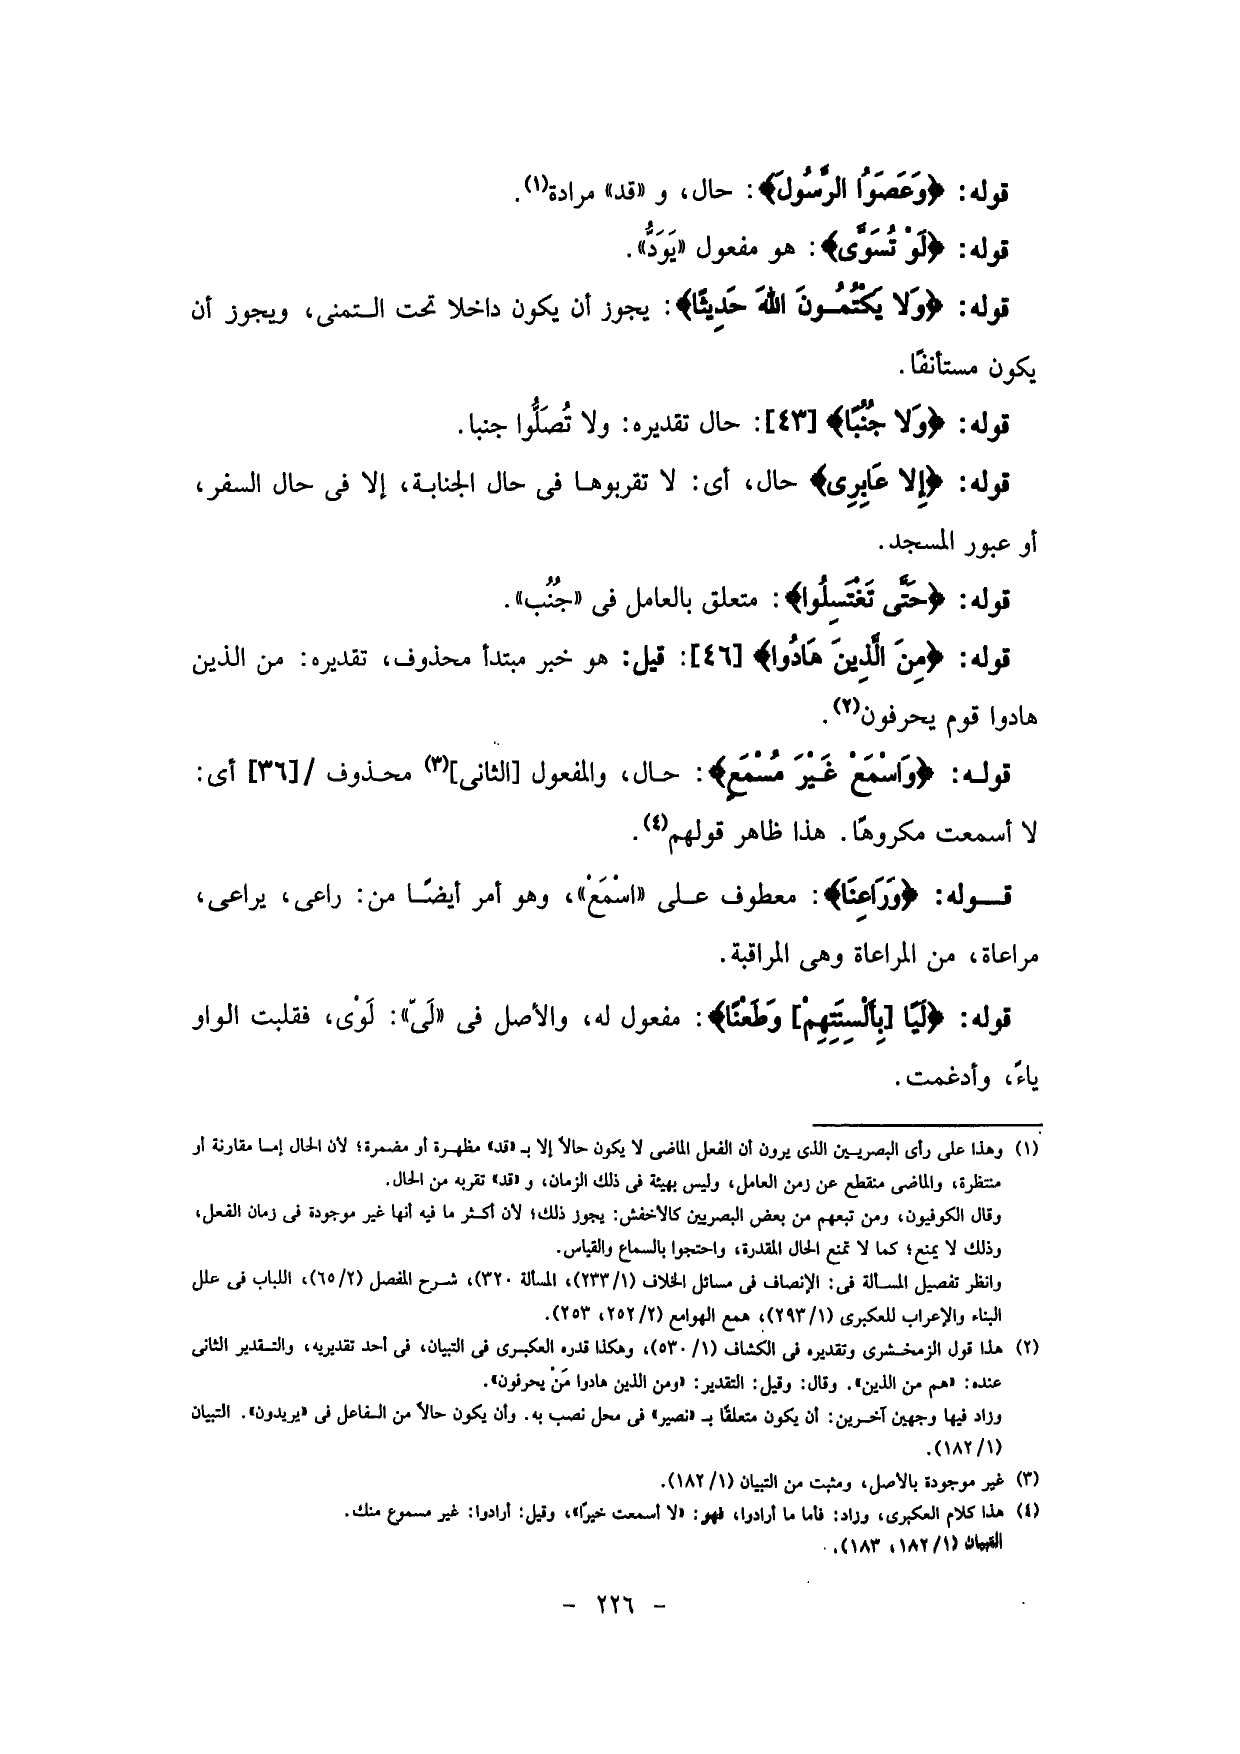 قوله: ﴿وَعَصَوُا الرَّسُولَ﴾: حال، و «قد» مرادة(١).
قوله: ﴿لَوْ تُسَوَّى﴾: هو مفعول «يَوَدُّ».
قوله: ﴿وَلا يَكْتُمُونَ اللهَ حَدِيثًا﴾: يجوز أن يكون داخلا تحت التمنى، ويجوز أن
يكون مستأنفًا.
قوله: ﴿وَلا جُنُبًا﴾ [٤٣]: حال تقديره: ولا تُصَلُّوا جنبا.
قوله: ﴿إِلا عَابِرِى﴾ حال، أى: لا تقربوها فى حال الجنابة، إلا فى حال السفر،
أو عبور المسجد.
قوله: ﴿حَتَّى تَغْتَسِلُوا﴾: متعلق بالعامل فى «جُنُب».
قوله: ﴿مِنَ الَّذِينَ هَادُوا﴾ [٤٦]: قيل: هو خبر مبتدأ محذوف، تقديره: من الذين
هادوا قوم يحرفون(٢).
قوله: ﴿وَاسْمَعْ غَيْرَ مُسْمَعٍ﴾: حال، والمفعول [الثانى](٣) محذوف /[٣٦] أى:
لا أسمعت مكروهًا. هذا ظاهر قولهم(٤).
قوله: ﴿وَرَاعِنَا﴾: معطوف على «اسْمَعْ»، وهو أمر أيضًا من: راعى، يراعى،
مراعاة، من المراعاة وهى المراقبة.
قوله: ﴿لَيًّا [بِأَلْسِنَتِهِمْ] وَطَعْنًا﴾: مفعول له، والأصل فى «لَىّ»: لَوْى، فقلبت الواو
ياءً، وأدغمت.
(١) وهذا على رأى البصريين الذى يرون أن الفعل الماضى لا يكون حالاً إلا بـ «قد» مظهرة أو مضمرة؛ لأن الحال إما مقارنة أو
منتظرة، والماضى منقطع عن زمن العامل، وليس بهيئة فى ذلك الزمان، و «قد» تقربه من الحال.
وقال الكوفيون، ومن تبعهم من بعض البصريين كالأخفش: يجوز ذلك؛ لأن أكثر ما فيه أنها غير موجودة فى زمان الفعل،
وذلك لا يمنع؛ كما لا تمنع الحال المقدرة، واحتجوا بالسماع والقياس.
وانظر تفصيل المسألة فى: الإنصاف فى مسائل الخلاف (٢٣٣/١)، المسألة ٣٢٠)، شرح المفصل (٦٥/٢)، اللباب فى علل
البناء والإعراب للعكبرى (٢٩٣/١)، همع الهوامع (٢٥٢/٢، ٢٥٣).
(٢) هذا قول الزمخشرى وتقديره فى الكشاف (٥٣٠/١)، وهكذا قدره العكبرى فى التبيان، فى أحد تقديريه، والتقدير الثانى
عنده: «هم من الذين». وقال: وقيل: التقدير: «ومن الذين هادوا مَنْ يحرفون».
وزاد فيها وجهين آخرين: أن يكون متعلقًا بـ «نصير» فى محل نصب به. وأن يكون حالاً من الفاعل فى «يريدون». التبيان
(١٨٢/١).
(٣) غير موجودة بالأصل، ومثبت من التبيان (١٨٢/١).
(٤) هذا كلام العكبرى، وزاد: فأما ما أرادوا، فهو: «لا أسمعت خيرًا»، وقيل: أرادوا: غير مسموع منك.
التبيان (١٨٢/١، ١٨٣).
- ٢٢٦ -